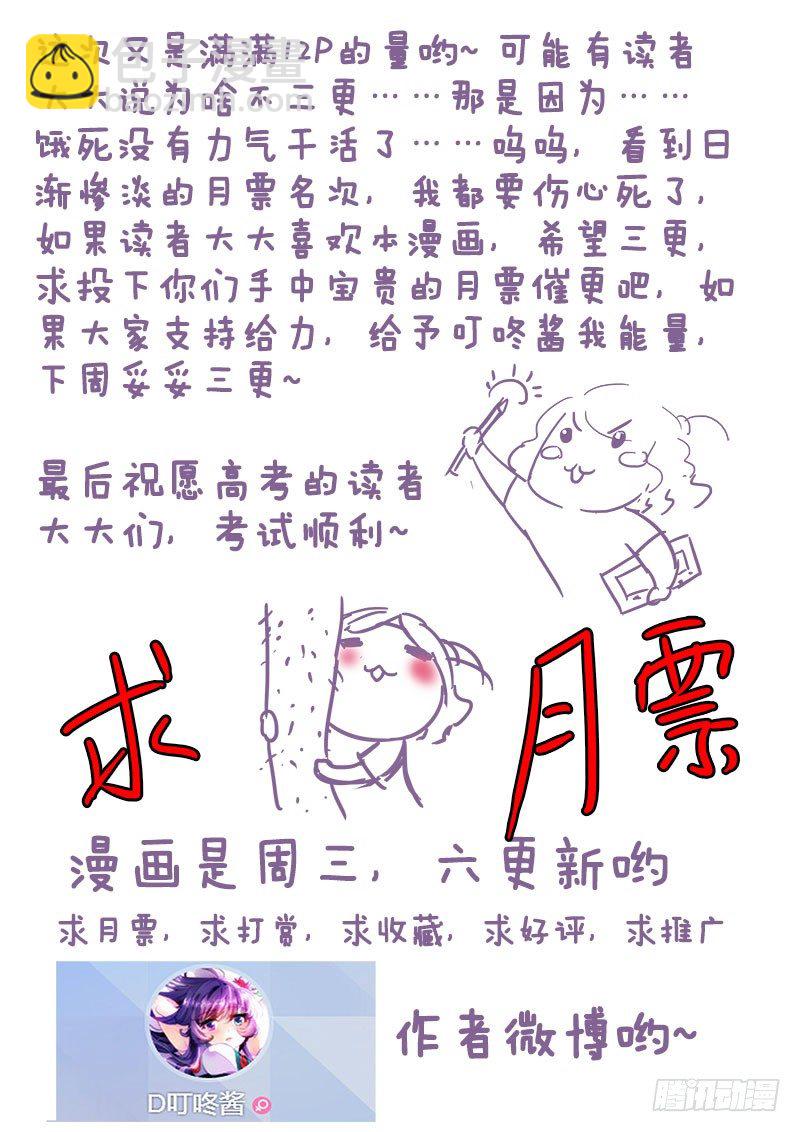 次又是满满12P的量哟~ 可能有读者
包子漫畫
大大说为啥不三更……那是因为……
baozimh.com
饿死没有力气干活了……呜呜, 看到日
渐惨淡的月票名次, 我都要伤心死了,
如果读者大大喜欢本漫画, 希望三更,
求投下你们手中宝贵的月票催更吧, 如
果大家支持给力, 给予叮咚酱我能量,
下周妥妥三更~
最后祝愿高考的读者
大大们, 考试顺利~
求 月票
漫画是周三, 六更新哟
求月票, 求打赏, 求收藏, 求好评, 求推广
作者微博哟~
D叮咚酱
腾讯动漫